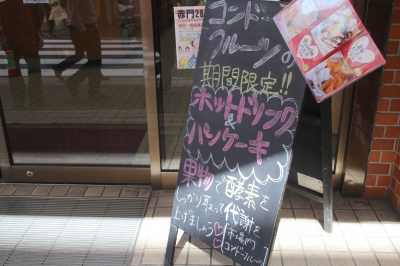 コンドー
フルーツの
期間限定!!
ホットドリンク
&
パンケーキ
果物で酵素を
しっかり耳又って代謝を
上げましょう
市場門
コンドーフルーツ
赤門28